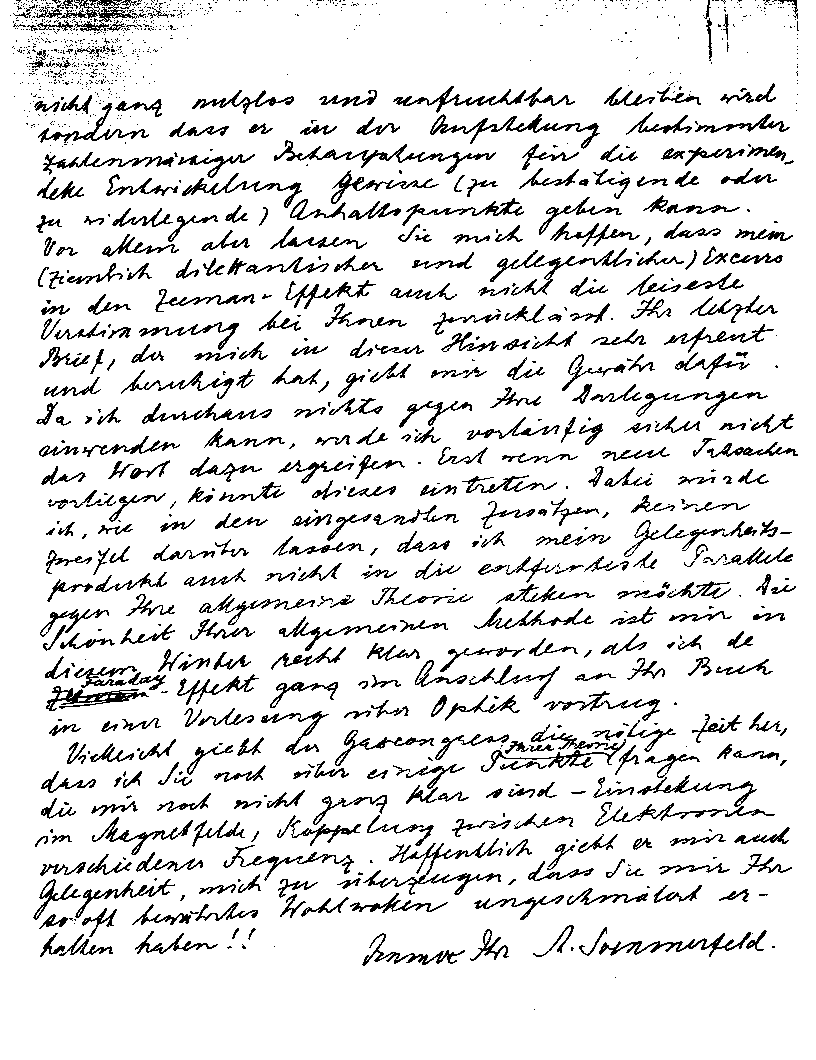 nicht ganz nutzlos und unfruchtbar bleiben wird
sondern dass er in der Aufstellung bestimmter
zahlenmässiger Behauptungen für die experimen-
telle Entwickelung gewisse (zu bestätigende oder
zu widerlegende) Anhaltspunkte geben kann.
Vor allem aber lassen Sie mich hoffen, dass mein
(ziemlich dilettantischer und gelegentlicher) Excurs
in den Zeeman-Effekt auch nicht die leiseste
Verstimmung bei Ihnen zurücklässt. Ihr letzter
Brief, der mich in dieser Hinsicht sehr erfreut
und beruhigt hat, giebt mir die Gewähr dafür.
Da ich durchaus nichts gegen Ihre Darlegungen
einwenden kann, werde ich vorläufig sicher nicht
das Wort dazu ergreifen. Erst wenn neue Tatsachen
vorliegen, könnte dieses eintreten. Dabei würde
ich, wie in den eingesandten Zusätzen, keinen
Zweifel darüber lassen, dass ich mein Gelegenheits-
produkt auch nicht in die entfernteste Parallele
gegen Ihre allgemeine Theorie stellen möchte. Die
Schönheit Ihrer allgemeinen Methode ist mir in
diesem Winter recht klar geworden, als ich de
Zeeman Faraday-Effekt ganz im Anschluss an Ihr Buch
in einer Vorlesung über Optik vortrug.
Vielleicht giebt der Gascongress die nötige Zeit her,
dass ich Sie noch über einige Punkte Ihrer Theorie fragen kann,
die mir noch nicht ganz klar sind – Einstellung
im Magnetfelde, Koppelung zwischen Elektronen
verschiedener Frequenz. Hoffentlich giebt er mir auch
Gelegenheit, mich zu überzeugen, dass Sie mir Ihr
so oft bewährtes Wohlwollen ungeschmälert er-
halten haben!!
Immer Ihr A. Sommerfeld.